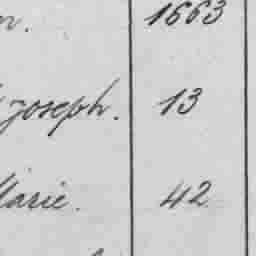 1663
Joseph. 13
Marie. 42